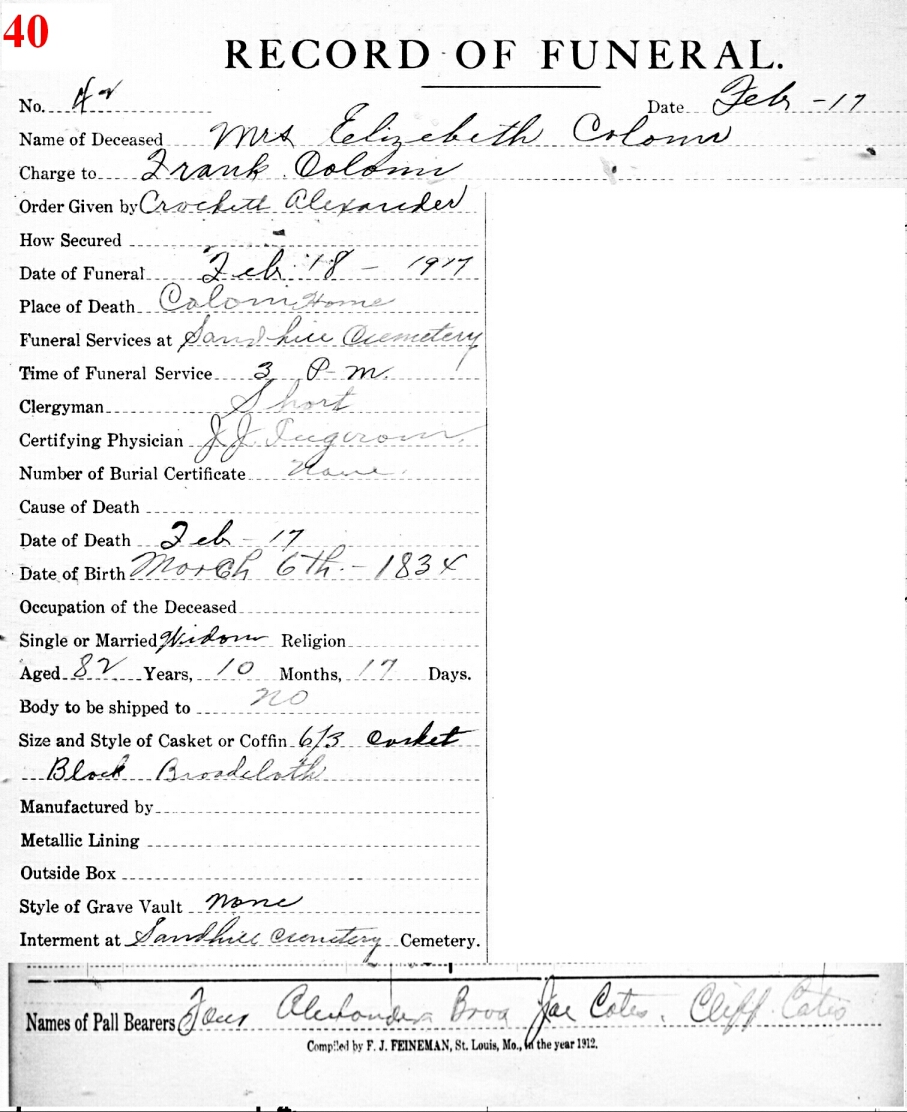 40
RECORD OF FUNERAL.
No. 42 Date Feb - 17
Name of Deceased Mrs Elizebeth Colom
Charge to Frank Colom
Order Given by Crockett Alexander
How Secured
Date of Funeral Feb 18 - 1917
Place of Death Colom Home
Funeral Services at Sandhill Cemetery
Time of Funeral Service 3 P-m.
Clergyman Short
Certifying Physician J J
Number of Burial Certificate None.
Cause of Death
Date of Death Feb - 17
Date of Birth March 6th - 1834
Occupation of the Deceased
Single or Married Widow Religion
Aged 82 Years, 10 Months, 17 Days.
Body to be shipped to no
Size and Style of Casket or Coffin 6/3 Casket
Black Broadcloth
Manufactured by
Metallic Lining
Outside Box
Style of Grave Vault none
Interment at Sandhill Cemetery Cemetery.
Names of Pall Bearers Four Alexander Joe Cates, Cliff Cates
Compiled by F. J. FEINEMAN, St. Louis, Mo., in the year 1912.